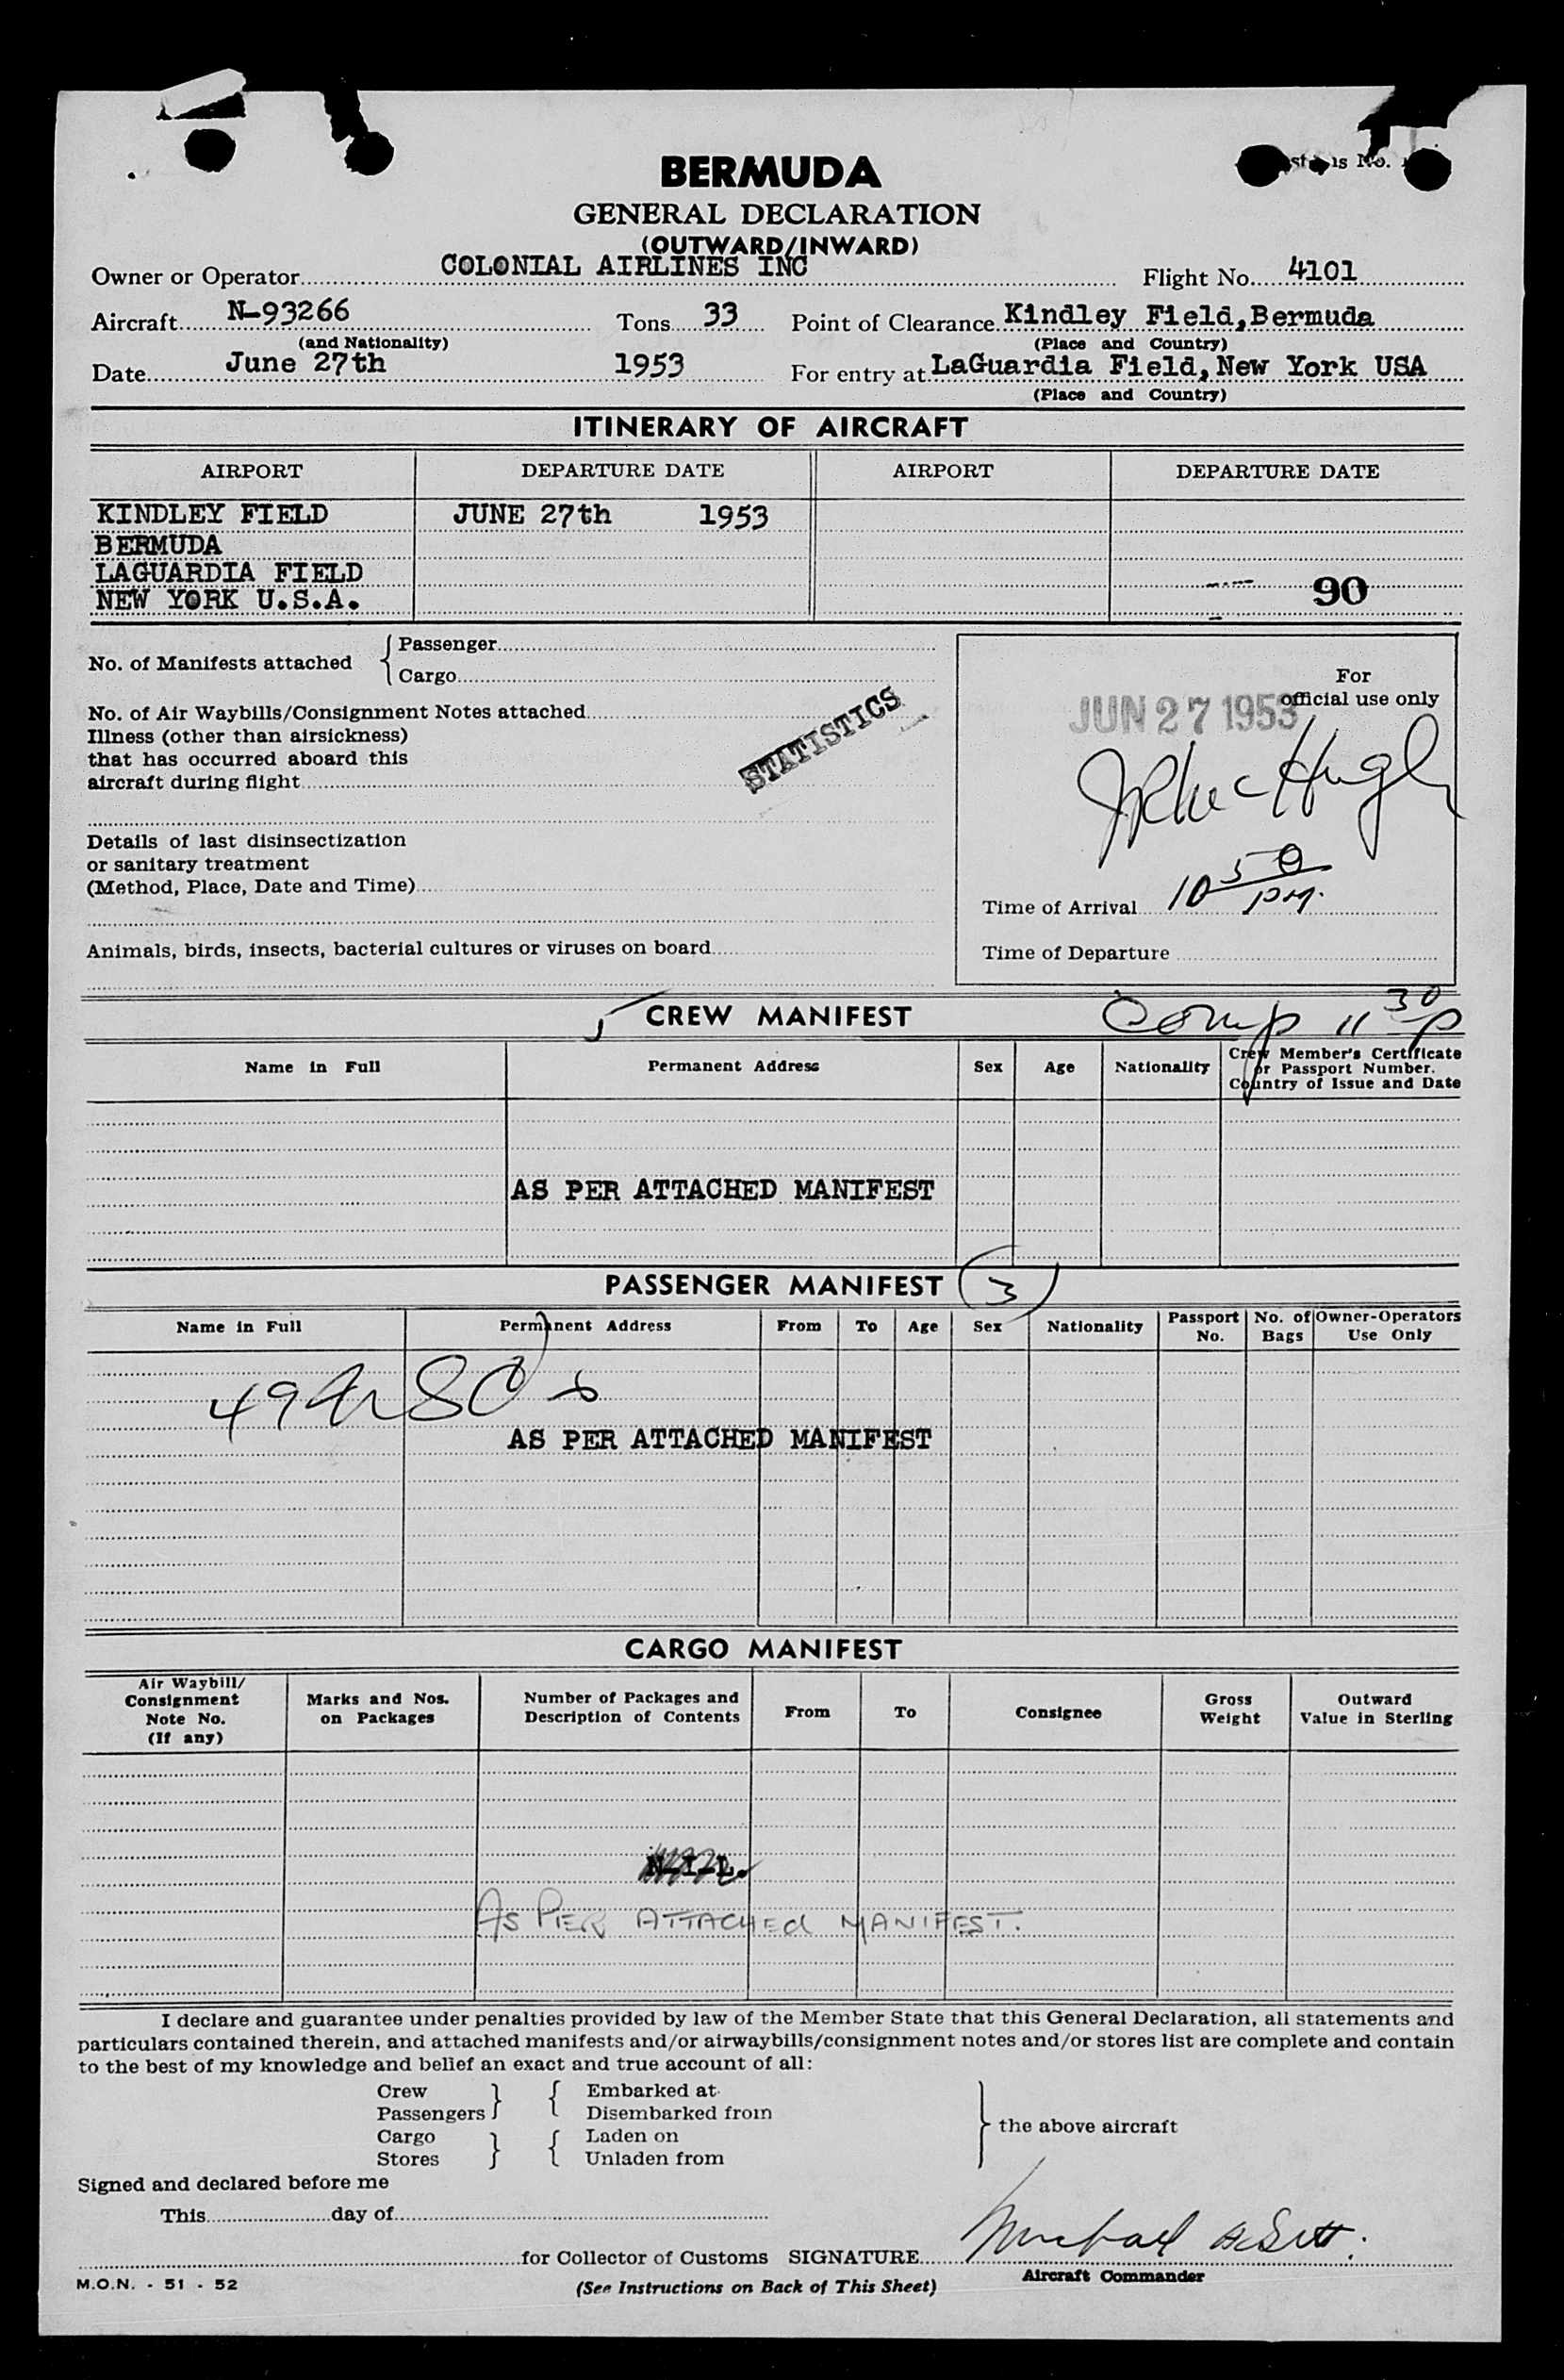 BERMUDA
GENERAL DECLARATION
(OUTWARD/INWARD)
Owner or Operator COLONIAL AIRLINES INC Flight No. 4101
Aircraft N-93266 Tons 33 Point of Clearance Kindley Field, Bermuda
(and Nationality) (Place and Country)
Date June 27th 1953 For entry at LaGuardia Field, New York USA
(Place and Country)
ITINERARY OF AIRCRAFT
AIRPORT DEPARTURE DATE AIRPORT DEPARTURE DATE
KINDLEY FIELD JUNE 27th 1953
BERMUDA
LAGUARDIA FIELD
NEW YORK U.S.A. 90
No. of Manifests attached { Passenger
Cargo
For
official use only
JUN 27 1953
No. of Air Waybills/Consignment Notes attached
STATISTICS
Illness (other than airsickness)
that has occurred aboard this
aircraft during flight
Details of last disinsectization
or sanitary treatment
(Method, Place, Date and Time)
Time of Arrival 10 50 PM.
Animals, birds, insects, bacterial cultures or viruses on board
Time of Departure
5 CREW MANIFEST Comp 11 30 p
Name in Full Permanent Address Sex Age Nationality Crew Member's Certificate
or Passport Number.
Country of Issue and Date
AS PER ATTACHED MANIFEST
PASSENGER MANIFEST 3
Name in Full Permanent Address From To Age Sex Nationality Passport No. No. of Bags Owner-Operators Use Only
AS PER ATTACHED MANIFEST
CARGO MANIFEST
Air Waybill/
Consignment
Note No.
(If any)
Marks and Nos.
on Packages
Number of Packages and
Description of Contents
From To Consignee
Gross
Weight
Outward
Value in Sterling
N-I-L.
AS PER ATTACHEd MANIFEST.
I declare and guarantee under penalties provided by law of the Member State that this General Declaration, all statements and
particulars contained therein, and attached manifests and/or airwaybills/consignment notes and/or stores list are complete and contain
to the best of my knowledge and belief an exact and true account of all:
Crew } { Embarked at
Passengers Disembarked from
the above aircraft
Cargo } { Laden on
Stores Unladen from
Signed and declared before me
This day of
for Collector of Customs SIGNATURE Michael
Aircraft Commander
M.O.N. - 51 - 52
(See Instructions on Back of This Sheet)